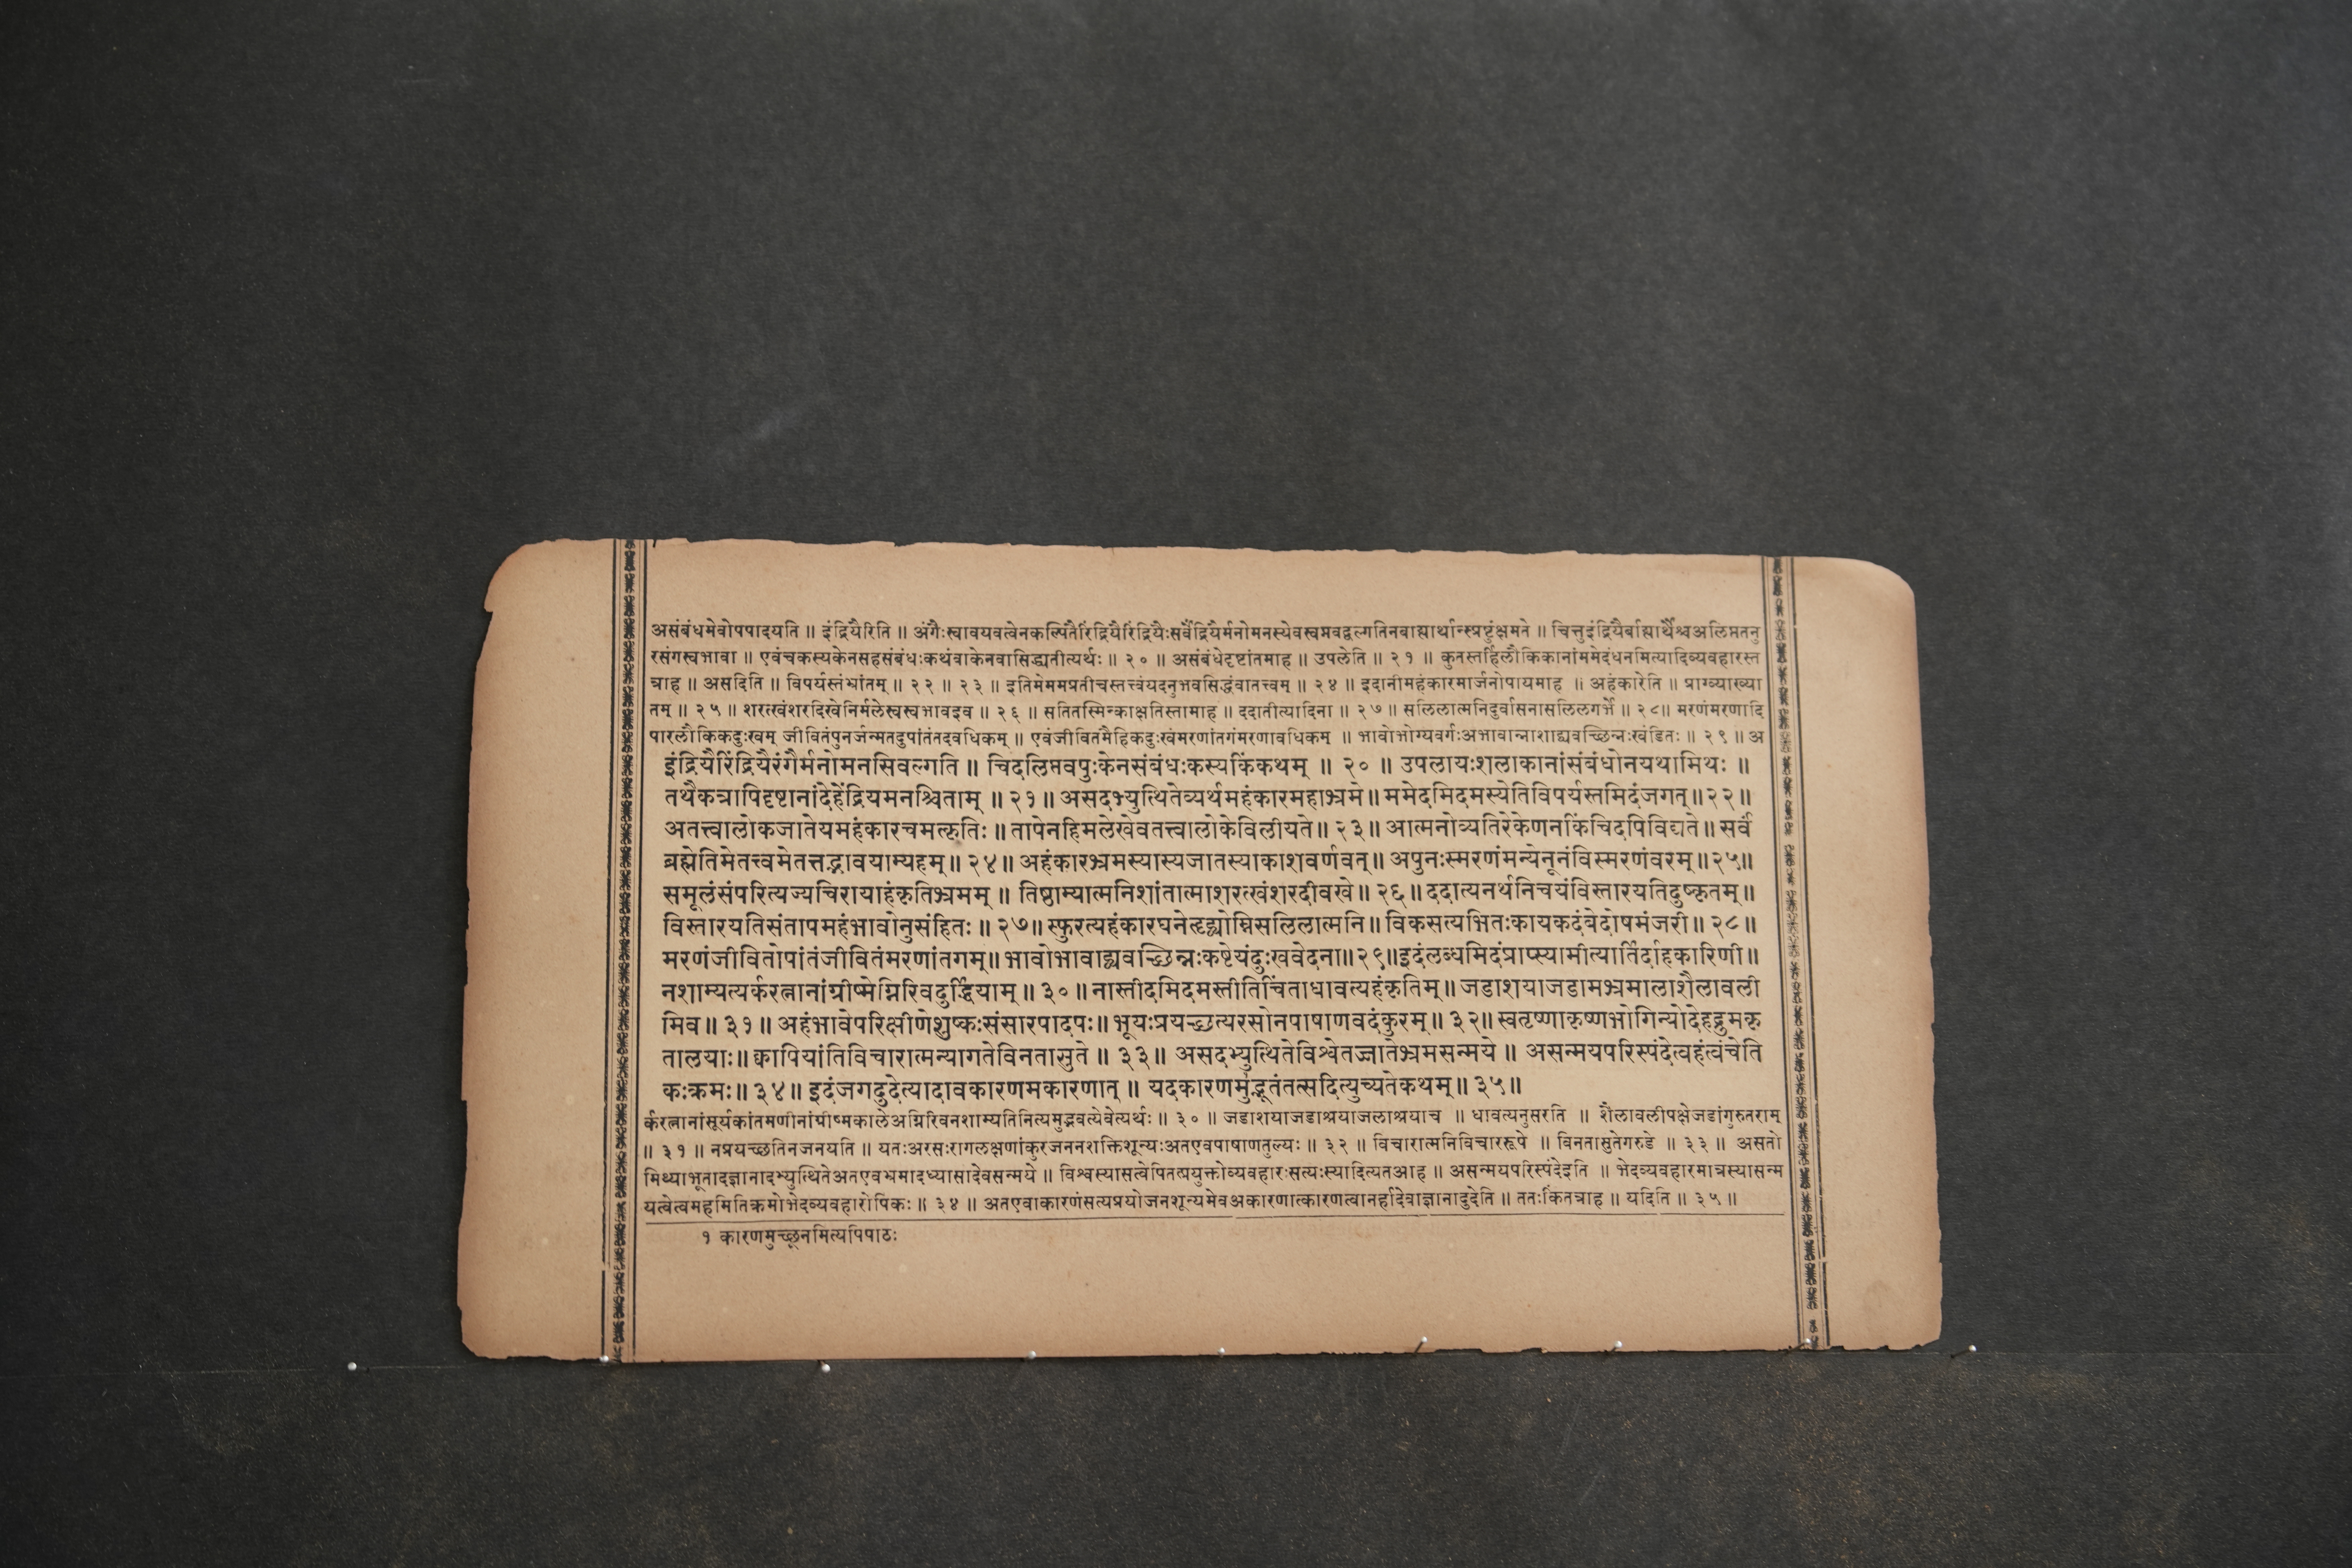 असंबंधमेवोपपादयति ॥ इंद्रियैरिति ॥ अंगैःस्वावयवत्वेनकल्पितैरिंद्रियैरिंद्रियैःसर्वेंद्रियैर्मनोमनस्येवस्वप्नवद्वल्गतिनबाह्यार्थान्स्प्रष्टुंक्षमते ॥ चित्तुइंद्रियैर्बाह्यार्थैश्चअलिप्ततनु
रसंगस्वभावा ॥ एवंचकस्यकेनसहसंबंधःकथंवाकेनवासिद्ध्यतीत्यर्थः ॥ २० ॥ असंबंधेदृष्टांतमाह ॥ उपलेति ॥ २१ ॥ कुतस्तर्हिलौकिकानांममेदंधनमित्यादिव्यवहारस्त
त्राह ॥ असदिति ॥ विपर्यस्तंभ्रांतम् ॥ २२ ॥ २३ ॥ इतिमेममप्रतीचस्तत्त्वंयदनुभवसिद्धंवातत्त्वम् ॥ २४ ॥ इदानीमहंकारमार्जनोपायमाह ॥ अहंकारेति ॥ प्राग्व्याख्या
तम् ॥ २५ ॥ शरत्खंशरदिखेनिर्मलेस्वस्वभावइव ॥ २६ ॥ सतितस्मिन्काक्षतिस्तामाह ॥ ददातीत्यादिना ॥ २७ ॥ सलिलात्मनिदुर्वासनासलिलगर्भे ॥ २८॥ मरणंमरणादि
पारलौकिकदुःखम् जीवितंपुनर्जन्मतदुपांतंतदवधिकम् ॥ एवंजीवितमैहिकदुःखंमरणांतगंमरणावधिकम् ॥ भावोभोग्यवर्गःअभावान्नाशाद्व्यवच्छिन्नःखंडितः ॥ २९ ॥ अ
इंद्रियैरिंद्रियैरंगैर्मनोमनसिवल्गति ॥ चिदलिप्तवपुःकेनसंबंधःकस्यकिंकथम् ॥ २० ॥ उपलायःशलाकानांसंबंधोनयथामिथः ॥
तथैकत्रापिदृष्टानांदेहेंद्रियमनश्चिताम् ॥ २१ ॥ असदभ्युत्थितेव्यर्थमहंकारमहाभ्रमे॥ ममेदमिदमस्येतिविपर्यस्तमिदंजगत्॥२२॥
अतत्त्वालोकजातेयमहंकारचमत्कृतिः ॥ तापेनहिमलेखेवतत्त्वालोकेविलीयते॥ २३॥ आत्मनोव्यतिरेकेणनकिंचिदपिविद्यते॥ सर्वं
ब्रह्मेतिमेतत्त्वमेतत्तद्भावयाम्यहम्॥ २४॥ अहंकारभ्रमस्यास्यजातस्याकाशवर्णवत्॥ अपुनःस्मरणंमन्येनूनंविस्मरणंवरम्॥२५॥
समूलंसंपरित्यज्यचिरायाहंकृतिभ्रमम् ॥ तिष्ठाम्यात्मनिशांतात्माशरत्खंशरदीवखे॥ २६॥ ददात्यनर्थनिचयंविस्तारयतिदुष्कृतम्॥
विस्तारयतिसंतापमहंभावोनुसंहितः॥ २७॥ स्फुरत्यहंकारघनेहृद्व्योम्निसलिलात्मनि॥ विकसत्यभितःकायकदंबेदोषमंजरी॥ २८॥
मरणंजीवितोपांतंजीवितंमरणांतगम्॥ भावोभावाद्व्यवच्छिन्नःकष्टेयंदुःखवेदना॥२९॥इदंलब्धमिदंप्राप्स्यामीत्यार्तिर्दाहकारिणी॥
नशाम्यत्यर्करत्नानांग्रीष्मेग्निरिवदुर्द्धियाम्॥ ३०॥ नास्तीदमिदमस्तीतिचिंताधावत्यहंकृतिम्॥ जडाशयाजडामभ्रमालाशैलावली
मिव॥ ३१॥ अहंभावेपरिक्षीणेशुष्कःसंसारपादपः॥ भूयःप्रयच्छत्यरसोनपाषाणवदंकुरम्॥ ३२॥ स्वतृष्णाकृष्णभोगिन्योदेहद्रुमकृ
तालयाः॥ क्वापियांतिविचारात्मन्यागतेविनतासुते ॥ ३३॥ असदभ्युत्थितेविश्वेतज्जातेभ्रमसन्मये ॥ असन्मयपरिस्पंदेत्वहंत्वंचेति
कःक्रमः॥ ३४॥ इदंजगदुदेत्यादावकारणमकारणात् ॥ यदकारणमुद्भूतंतत्सदित्युच्यतेकथम्॥ ३५॥
र्करत्नानांसूर्यकांतमणीनांग्रीष्मकालेअग्निरिवनशाम्यतिनित्यमुद्भवत्येवेत्यर्थः ॥ ३० ॥ जडाशयाजडाश्रयाजलाश्रयाच ॥ धावत्यनुसरति ॥ शैलावलीपक्षेजडांगुरुतराम्
॥ ३१ ॥ नप्रयच्छतिनजनयति ॥ यतःअरसःरागलक्षणांकुरजननशक्तिशून्यःअतएवपाषाणतुल्यः ॥ ३२ ॥ विचारात्मनिविचाररूपे ॥ विनतासुतेगरुडे ॥ ३३ ॥ असतो
मिथ्याभूतादज्ञानादभ्युत्थितेअतएवभ्रमादध्यासादेवसन्मये ॥ विश्वस्यासत्वेपितत्प्रयुक्तोव्यवहारःसत्यःस्यादित्यतआह ॥ असन्मयपरिस्पंदेइति ॥ भेदव्यवहारमात्रस्यासन्म
यत्वेत्वमहमितिक्रमोभेदव्यवहारोपिकः ॥ ३४ ॥ अतएवाकारणंसत्यप्रयोजनशून्यमेवअकारणात्कारणत्वानर्हादेवाज्ञानादुदेति ॥ ततःकिंतत्राह ॥ यदिति ॥ ३५ ॥
१ कारणमुच्छूनमित्यपिपाठः